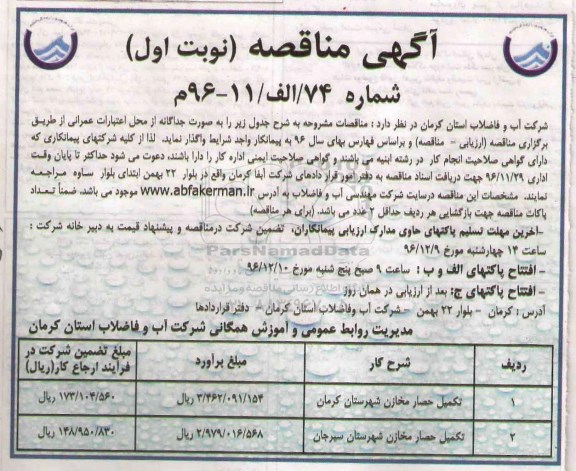 آگهی مناقصه (نوبت اول)
شماره ۷۴/الف/۱۱-۹۶م
شرکت آب و فاضلاب استان کرمان در نظر دارد : مناقصات مشروحه به شرح جدول زیر را به صورت جداگانه از محل اعتبارات عمرانی از طریق
برگزاری مناقصه (ارزیابی – مناقصه) و براساس فهارس بهای سال ۹۶ به پیمانکار واجد شرایط واگذار نماید. لذا از کلیه شرکتهای پیمانکاری که
دارای گواهی صلاحیت انجام کار در رشته ابنیه می باشند و گواهی صلاحیت ایمنی اداره کار را دارا باشند، دعوت می شود حداکثر تا پایان وقت
اداری ۹۶/۱۱/۲۹ جهت دریافت اسناد مناقصه به دفتر امور قرار دادهای شرکت آبفا کرمان واقع در بلوار ۲۲ بهمن ابتدای بلوار ساوه مراجعه
نمایند. مشخصات این مناقصه درسایت شرکت مهندسی آب و فاضلاب به آدرس www.abfakerman.ir موجود می باشد. ضمناً تعداد
پاکات مناقصه جهت بازگشایی هر ردیف حداقل ۲ عدد می باشد. (برای هر مناقصه)
-آخرین مهلت تسلیم پاکتهای حاوی مدارک ارزیابی پیمانکاران، تضمین شرکت درمناقصه و پیشنهاد قیمت به دبیر خانه شرکت :
ساعت ۱۴ چهارشنبه مورخ ۹۶/۱۲/۹
- افتتاح پاکتهای الف و ب : ساعت ۹ صبح پنج شنبه مورخ ۹۶/۱۲/۱۰
- افتتاح پاکتهای ج: بعد از ارزیابی در همان روز
آدرس : کرمان – بلوار ۲۲ بهمن – شرکت آب وفاضلاب استان کرمان – دفتر قراردادها
مدیریت روابط عمومی و آموزش همگانی شرکت آب و فاضلاب استان کرمان
ردیف شرح کار مبلغ برآورد مبلغ تضمین شرکت در فرآیند ارجاع کار(ریال)
۱ تکمیل حصار مخازن شهرستان کرمان ۳/۴۶۲/۰۹۱/۱۵۴ ریال ۱۷۳/۱۰۴/۵۶۰ ریال
۲ تکمیل حصار مخازن شهرستان سیرجان ۲/۹۷۹/۰۱۶/۵۶۸ ریال ۱۴۸/۹۵۰/۸۳۰ ریال
ParsNamadData